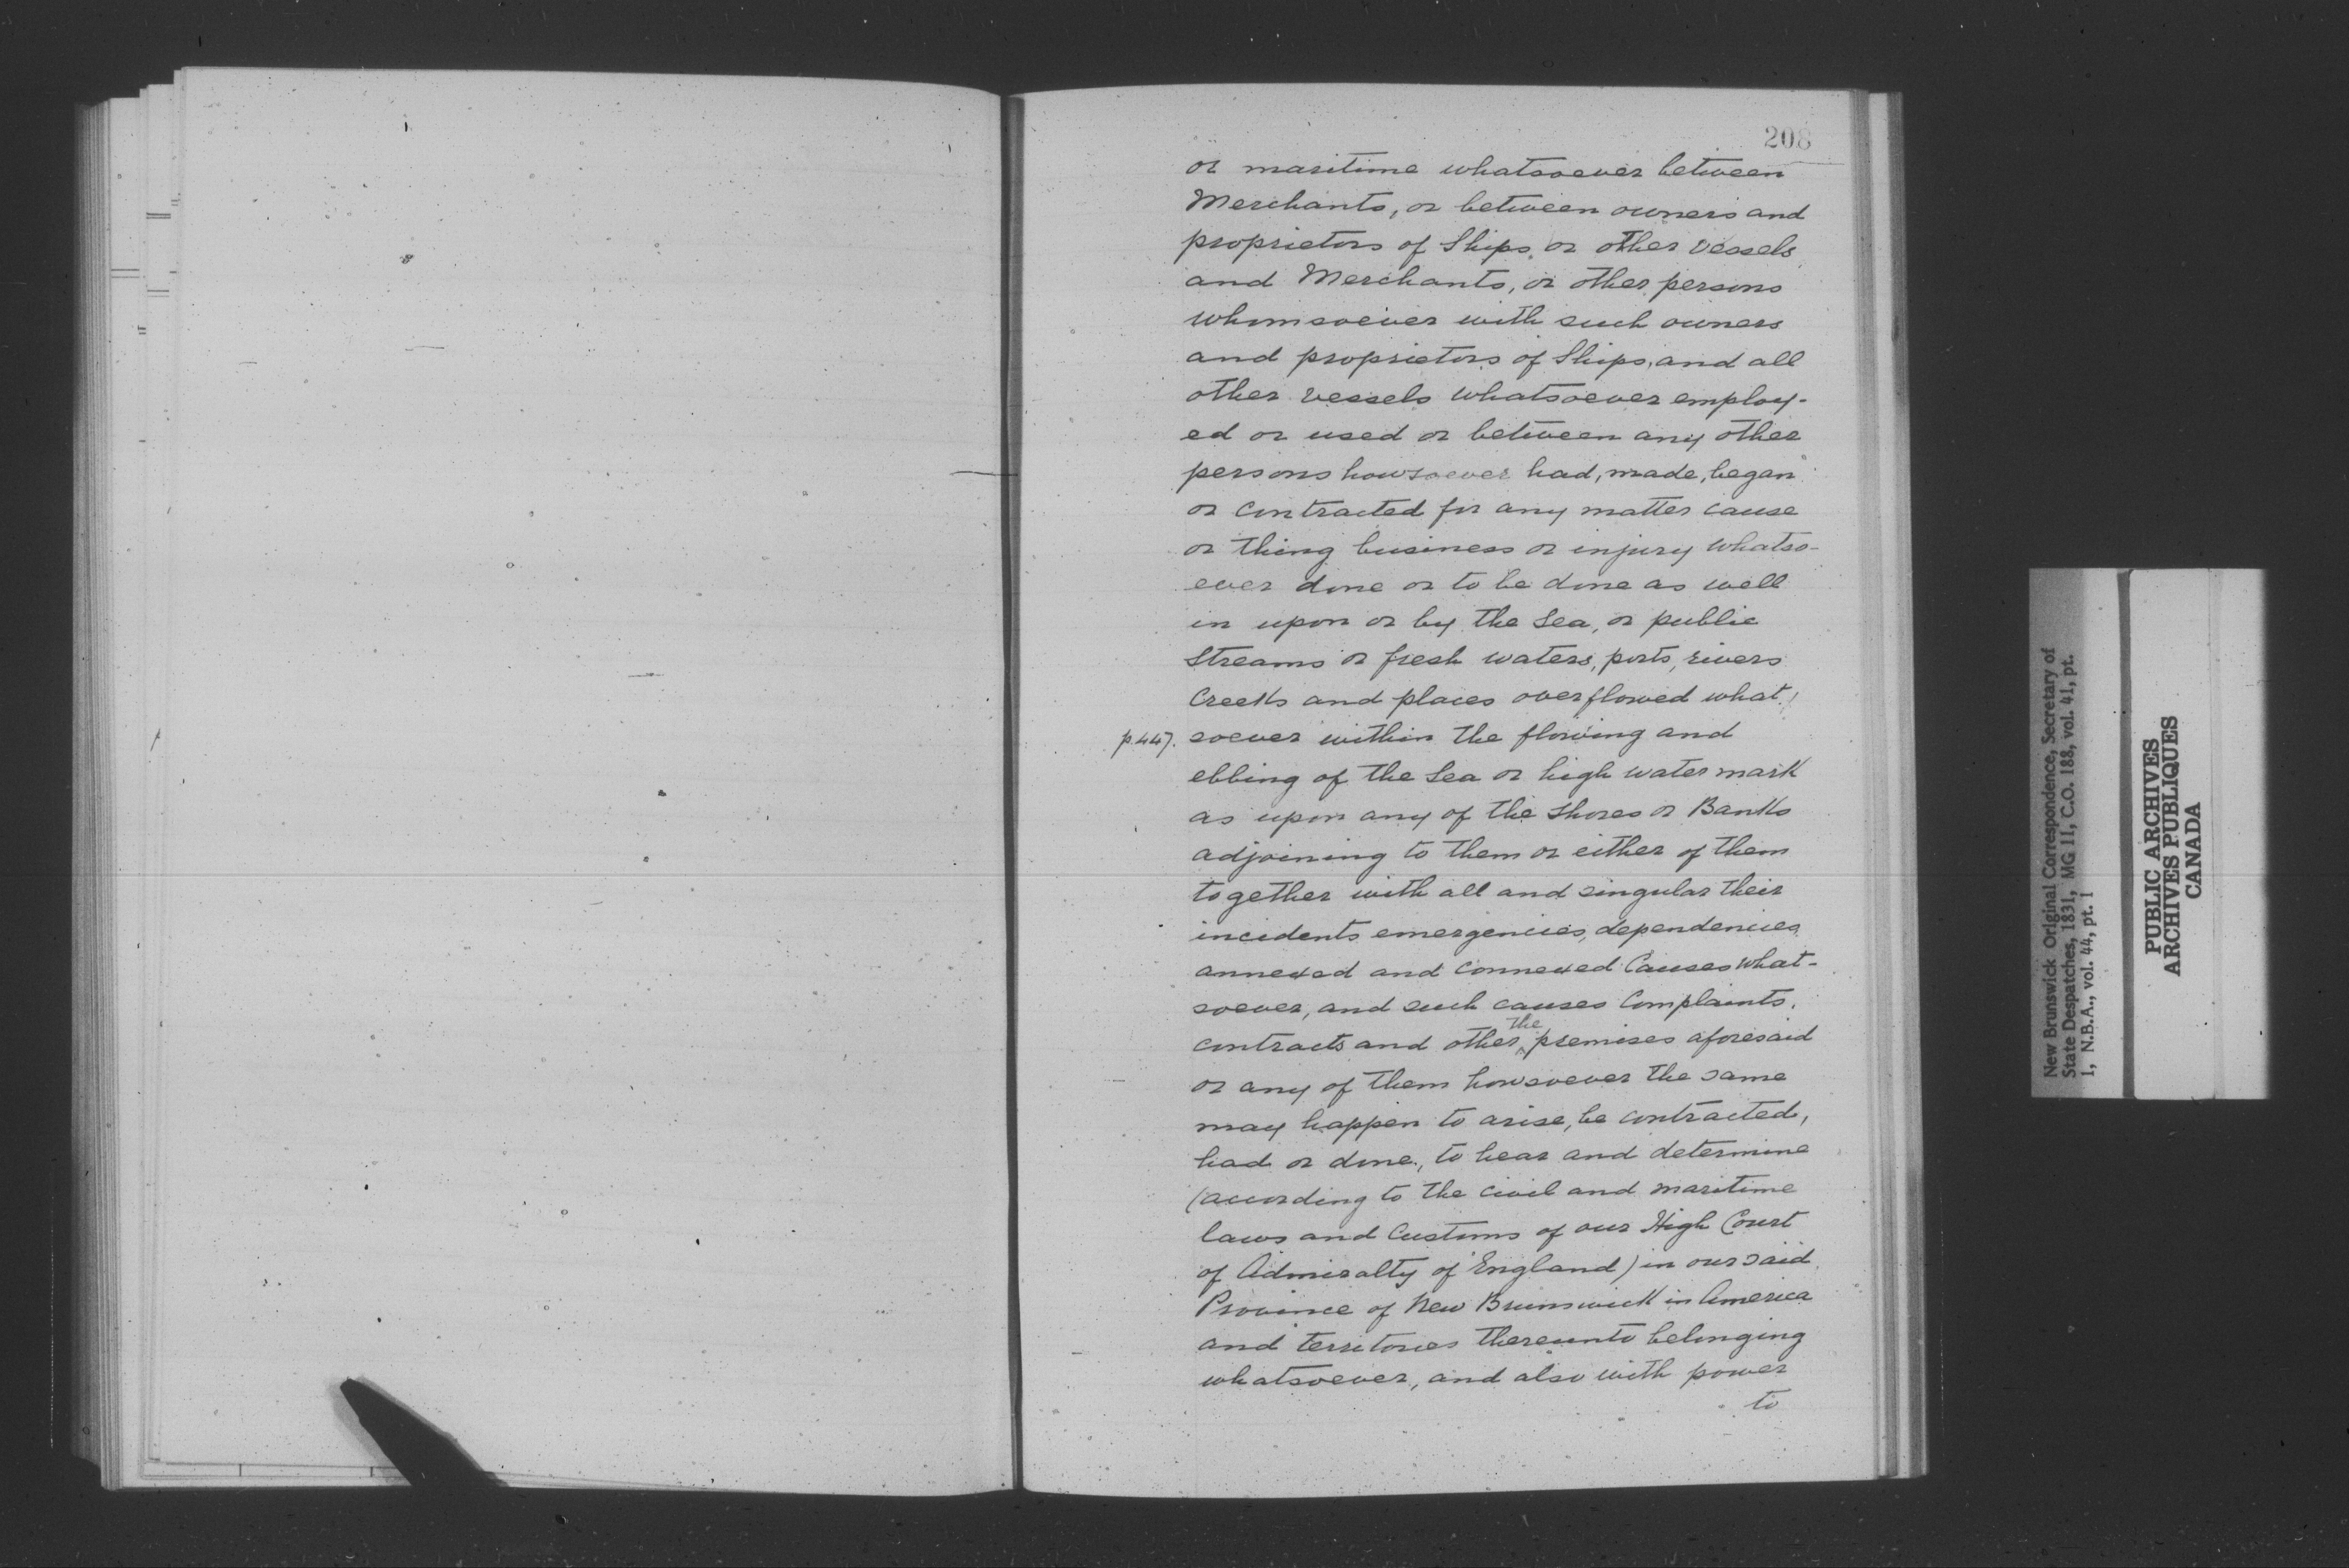 208
or maritime whatsoever between
Merchants, or between owners and
proprietors of Ships, or other vessels
and Merchants, or other persons
whomsoever with such owners
and proprietors of Ships, and all
other vessels whatsoever employ-
ed or used or between any other
persons howsoever had, made, began
or contracted for any matter cause
or thing business or injury whatso-
ever done or to be done as well
in upon or by the Sea, or public
Streams or fresh waters, ports, rivers
Creeks and places overflowed what-
p.447. soever within the flowing and
ebbing of the Sea or high water mark
as upon any of the Shores or Banks
adjoining to them or either of them
together with all and singular their
incidents emergencies, dependencies
annexed and connexed Causes what-
soever, and such causes Complaints.
contracts and other the premises aforesaid
or any of them howsoever the same
may happen to arise, be contracted,
had or done, to hear and determine
(according to the civil and maritime
laws and Customs of our High Court
of Admiralty of England) in our said
Province of New Brunswick in America
and territories thereunto belonging
whatsoever, and also with power
to
New Brunswick Original Correspondence, Secretary of
State Despatches, 1831, MG 11, C.O. 188, vol. 41, pt.
1, N.B.A., vol. 44, pt. 1
PUBLIC ARCHIVES
ARCHIVES PUBLIQUES
CANADA